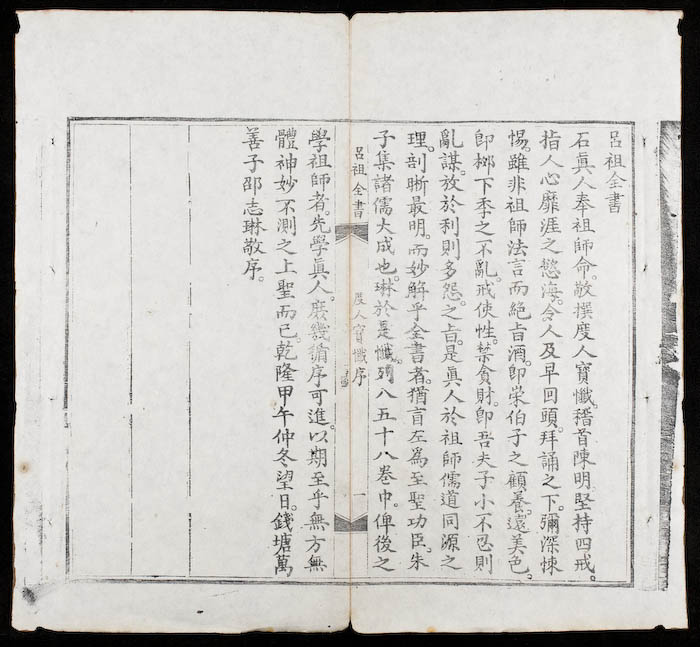 呂祖全書
石眞人奉祖師命。敬撰度人寶懺。稽首陳明。堅持四戒。
指人心靡涯之慾海。令人及早回頭。拜誦之下。彌深悚
惕。雖非祖師法言而絕旨酒。卽榮伯子之顧養。遠美色。
卽桺下季之不亂。戒使性。禁貪財。卽吾夫子小不忍則
亂謀。放於利則多怨。之旨。是眞人於祖師儒道同源之
理。剖晰最明。而妙解乎全書者。猶盲左為至聖功臣。朱
子集諸儒大成也。琳於是懺。列入五十八卷中。俾後之
呂祖全書
度人寶懺序
一
學祖師者。先學眞人。庶幾循序可進。以期至乎無方無
體神妙不測之上聖而已。乾隆甲午仲冬望日。錢塘萬
善子邵志琳敬序。